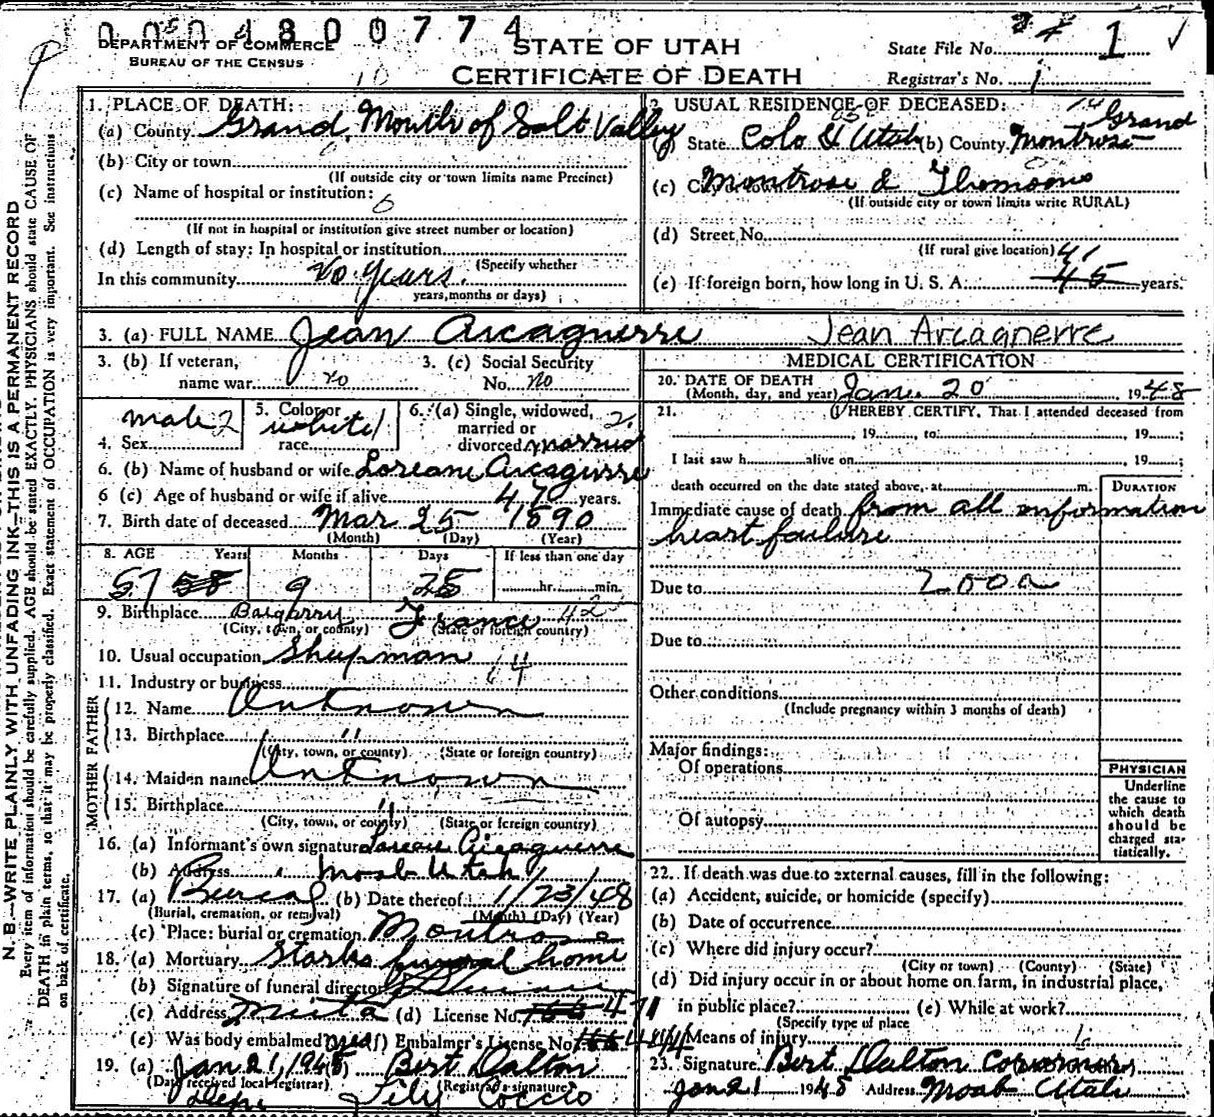 0004800774
DEPARTMENT OF COMMERCE
BUREAU OF THE CENSUS
STATE OF UTAH
CERTIFICATE OF DEATH
State File No. 1
Registrar's No. 1
N. B.—WRITE PLAINLY WITH UNFADING INK—THIS IS A PERMANENT RECORD
Every item of information should be carefully supplied. AGE should be stated EXACTLY. PHYSICIANS should state CAUSE OF
DEATH in plain terms, so that it may be properly classified. Exact statement of OCCUPATION is very important. See instructions
on back of certificate.
1. PLACE OF DEATH:
(a) County Grand. Mouth of Salt Valley
(b) City or town
(If outside city or town limits name Precinct)
(c) Name of hospital or institution:
(If not in hospital or institution give street number or location)
(d) Length of stay: In hospital or institution
(Specify whether
In this community Years.
years, months or days)
2. USUAL RESIDENCE OF DECEASED:
State Colo & Utah (b) County Montrose Grand
(c) Montrose &
(If outside city or town limits write RURAL)
(d) Street No.
(If rural give location)
(e) If foreign born, how long in U. S. A. 41 45 years.
3. (a) FULL NAME Jean Arcaguerre Jean Arcagnerre
3. (b) If veteran,
name war no
3. (c) Social Security
No. no
4. Sex male 2
5. Color or
race white 1
6. (a) Single, widowed,
married or
divorced married 2
6. (b) Name of husband or wife Arcaguerre
6 (c) Age of husband or wife if alive 47 years.
7. Birth date of deceased Mar 25 1890
(Month) (Day) (Year)
8. AGE Years Months Days If less than one day
57 58 9 25 hr. min.
9. Birthplace France
(City, town, or county) (State or foreign country)
10. Usual occupation Sheepman
11. Industry or business
FATHER
12. Name Unknown
13. Birthplace "
(City, town, or county) (State or foreign country)
MOTHER
14. Maiden name Unknown
15. Birthplace "
(City, town, or county) (State or foreign country)
16. (a) Informant's own signature Arcaguerre
(b) Address Moab Utah
17. (a) Burial (b) Date thereof 1/23/48
(Burial, cremation, or removal) (Month) (Day) (Year)
(c) Place: burial or cremation Montrose
18. (a) Mortuary Starks funeral home
(b) Signature of funeral director
(c) Address (d) License No. 471
(e) Was body embalmed (f) Embalmer's License No.
19. (a) Jan 21, 1948 Bert Dalton
(Date received local registrar) (Registrar's signature)
Depi Lily Coccio
MEDICAL CERTIFICATION
20. DATE OF DEATH
(Month, day, and year) Jan. 20 1948
21. I HEREBY CERTIFY, That I attended deceased from
, 19 , to , 19 ;
I last saw h alive on , 19 ;
death occurred on the date stated above, at m.
DURATION
Immediate cause of death from all information
heart failure
Due to 200a
Due to
Other conditions
(Include pregnancy within 3 months of death)
Major findings:
Of operations
Of autopsy
PHYSICIAN
Underline
the cause to
which death
should be
charged sta-
tistically.
22. If death was due to external causes, fill in the following:
(a) Accident, suicide, or homicide (specify)
(b) Date of occurrence
(c) Where did injury occur?
(City or town) (County) (State)
(d) Did injury occur in or about home on farm, in industrial place,
in public place? (e) While at work?
(Specify type of place
Means of injury
23. Signature Bert Dalton Coronor
Jan 21 1948 Address Moab Utah